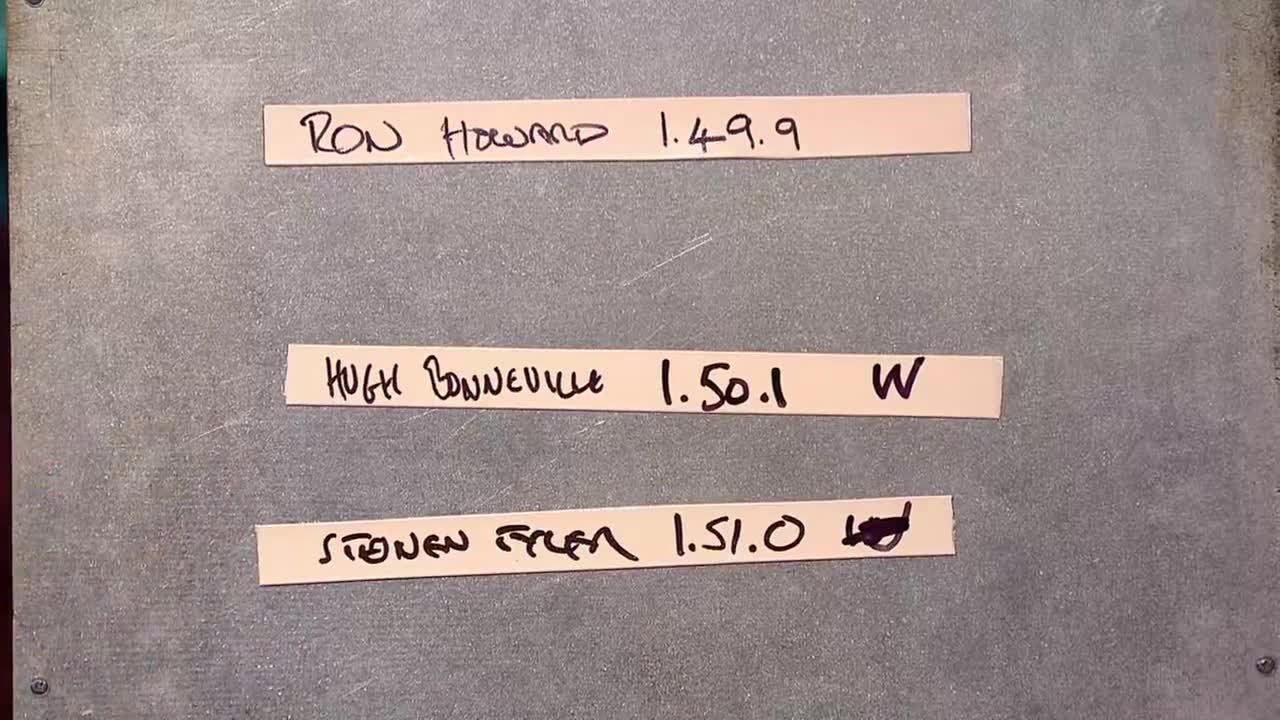 RON HOWARD 1.49.9
HUGH BONNEVILLE 1.50.1 W
STEVEN TYLER 1.51.0